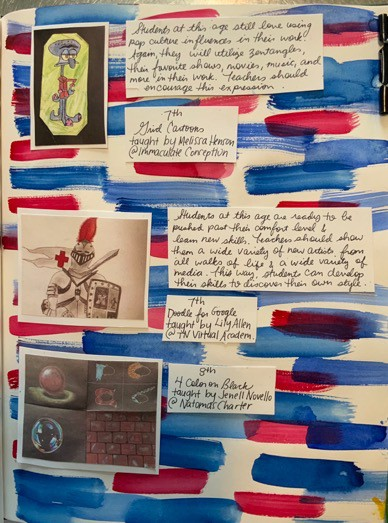 Students at this age still love using
pop culture influences in their work.
Again, they will utilize zentangles,
their favorite shows, movies, music, and
more in their work. Teachers should
encourage this expression.
7th
Grid Cartoons
taught by Melissa Henson
@Immaculate Conception
Students at this age are ready to be
pushed past their comfort level &
learn new skills. Teachers should show
them a wide variety of new artists from
all walks of life & a wide variety of
media. This way, students can develop
their skills to discover their own style.
7th
Doodle for Google
taught by Lily Allen
@ TN Virtual Academ.
8th
4 Color on Black
taught by Jenell Novello
@ Natomas Charter